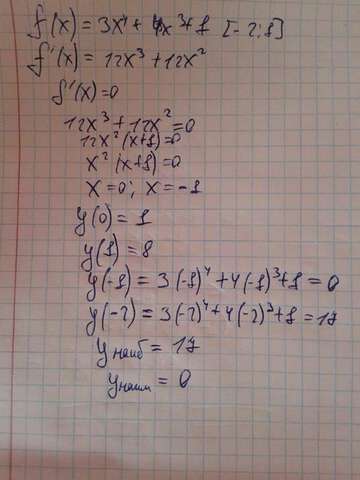 f(x) = 3x⁴ + 4x³ + 1 [-2;1]
f'(x) = 12x³ + 12x²
f'(x) = 0
12x³ + 12x² = 0
12x²(x+1) = 0
x²(x+1) = 0
x = 0; x = -1
y(0) = 1
y(1) = 8
y(-1) = 3(-1)⁴ + 4(-1)³ + 1 = 0
y(-2) = 3(-2)⁴ + 4(-2)³ + 1 = 17
y наиб = 17
y наим = 0